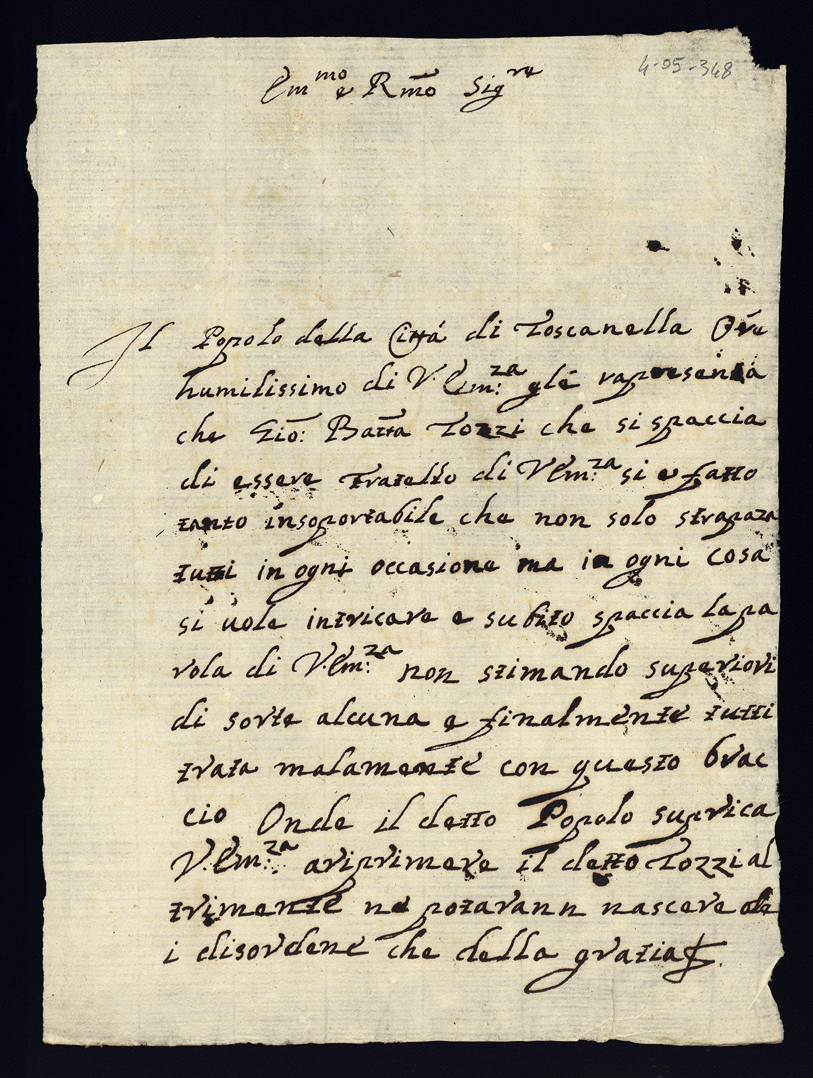 4-05-348
Em.mo e R.mo Sig.re
Il Popolo della Città di Toscanella Ore
humilissimo di V. Em:za gle rapresenta
che Gio: Batta Tozzi che si spaccia
di essere Fratello di V Em:za si e fatto
tanto insoportabile che non solo strapaza
tutti in ogni occasione ma in ogni cosa
si uole intricare e subito spaccia la pa
rola di V. Em:za non stimando superiori
di sorte alcuna e finalmente tutti
trata malamente con questo brac
cio Onde il detto Popolo suprica
V. Em:za a riprimere il detto Tozzi al
trimente ne potarann nascere
i disordene che della grazia